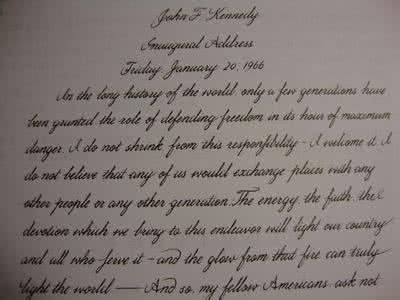 John F. Kennedy
Inaugural Address
Friday January 20, 1966
In the long history of the world only a few generations have
been granted the role of defending freedom in its hour of maximum
danger. I do not shrink from this responsibility - I welcome it. I
do not believe that any of us would exchange places with any
other people or any other generation. The energy the faith, the
devotion which we bring to this endeavor will light our country
and all who serve it - and the glow from that fire can truly
light the world — And so, my fellow Americans ask not